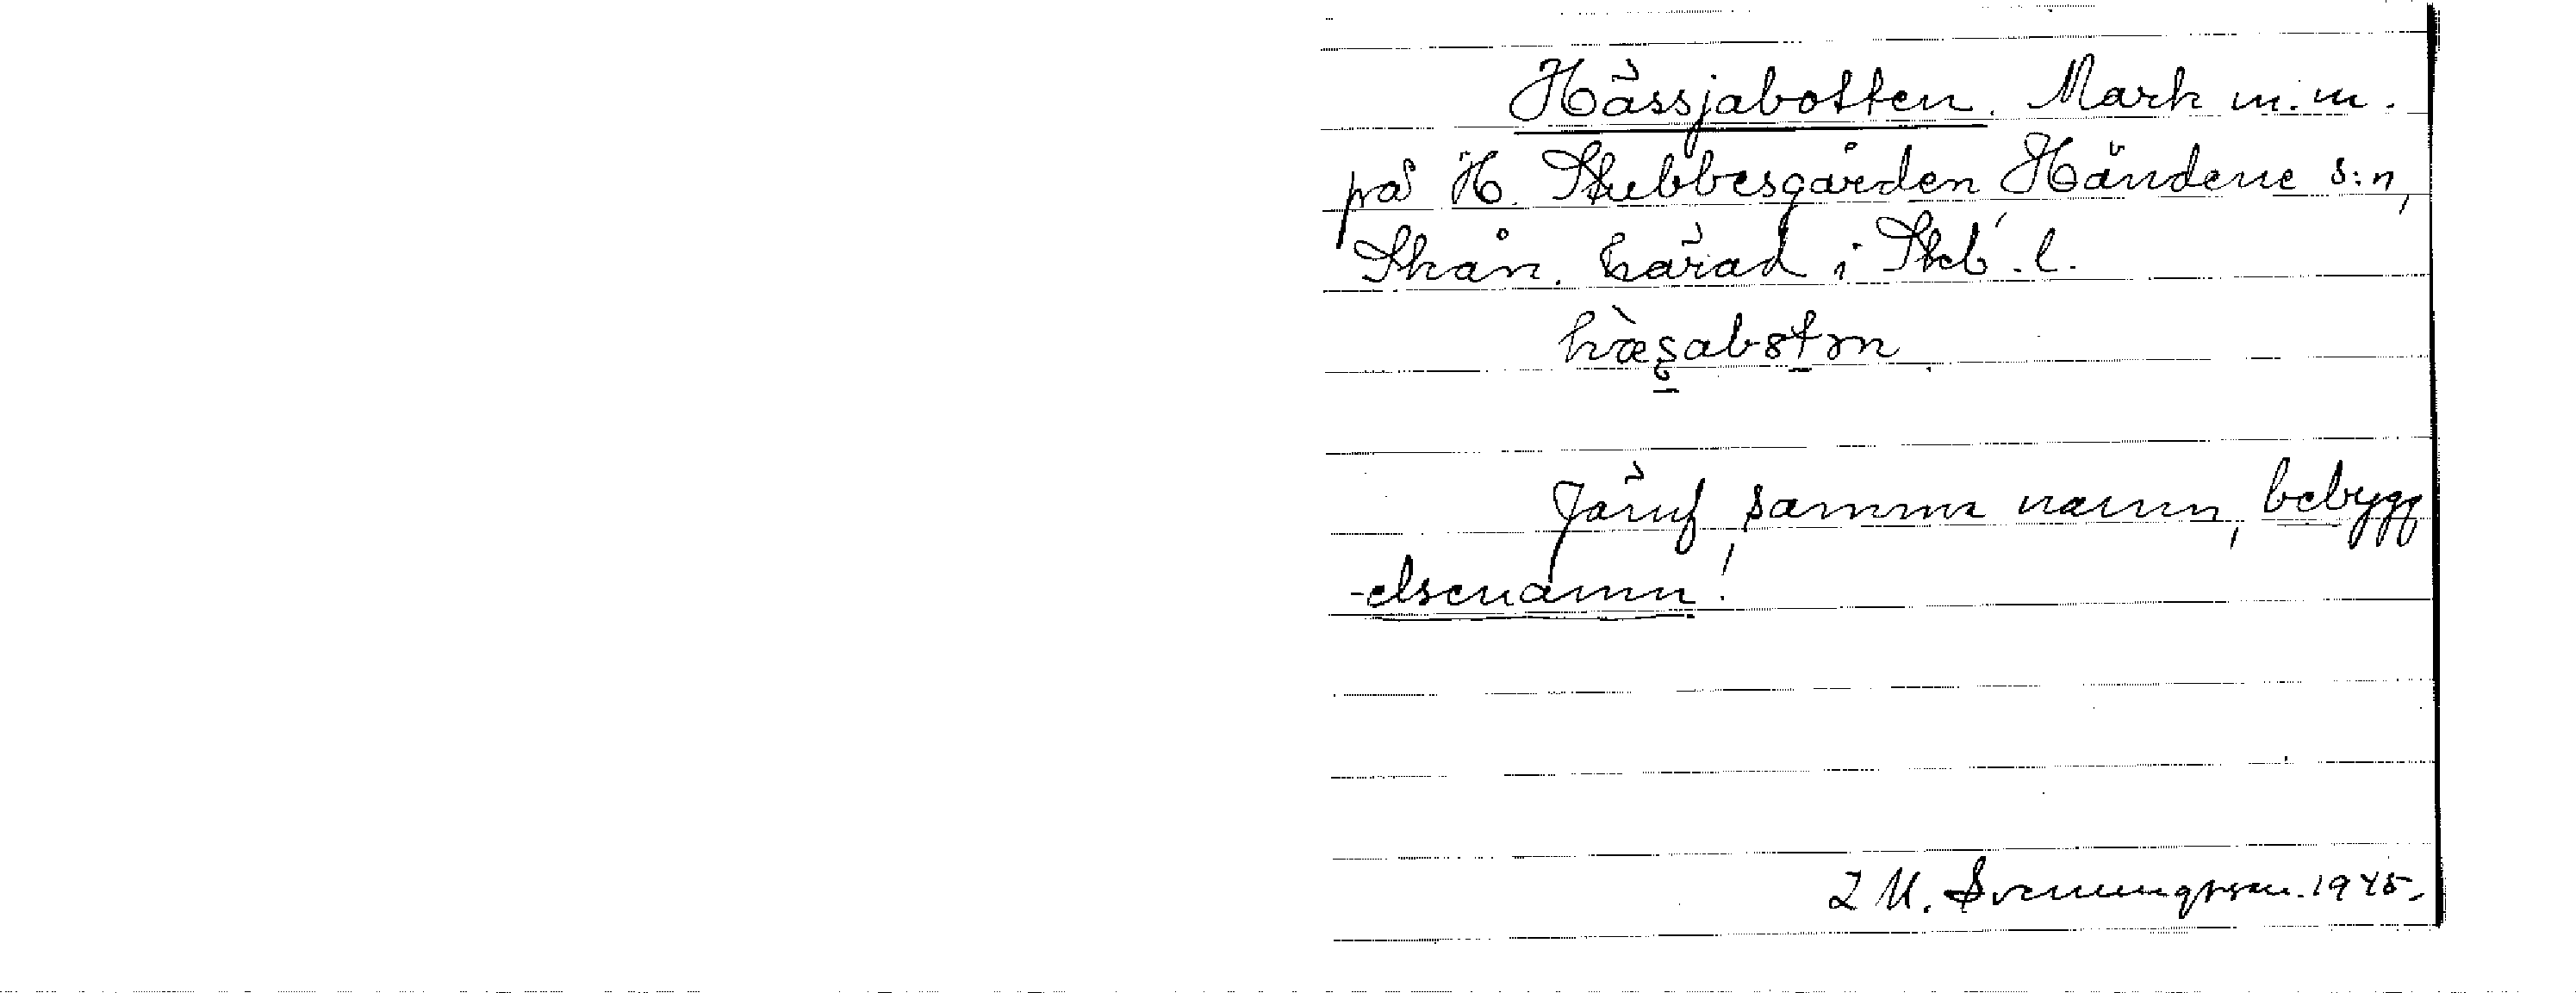 Hässjabotten. Mark m.m.
på H. Stubbesgården Händene s:n,
Skån. härad i Skb. l.
Jämf samma namn, bebygg
-elsenamn!
Svenungsson. 1945.